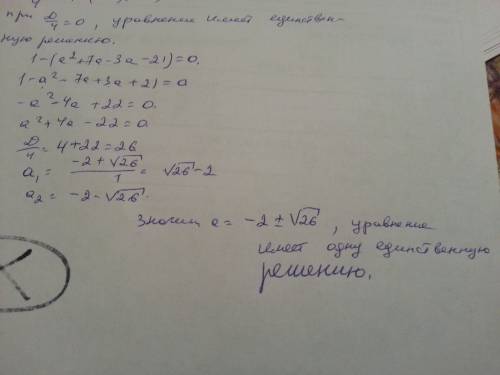 при D/4 = 0, уравнение имеет единствен-
ную решению.
1-(a²+7a-3a-21)=0.
1-a²-7a+3a+21=0
-a²-4a+22=0.
a²+4a-22=0.
D/4 = 4+22=26
a₁ = (-2+√26)/1 = √26-2
a₂ = -2-√26.
Значит a = -2±√26, уравнение
имеет одну единственную
решению.